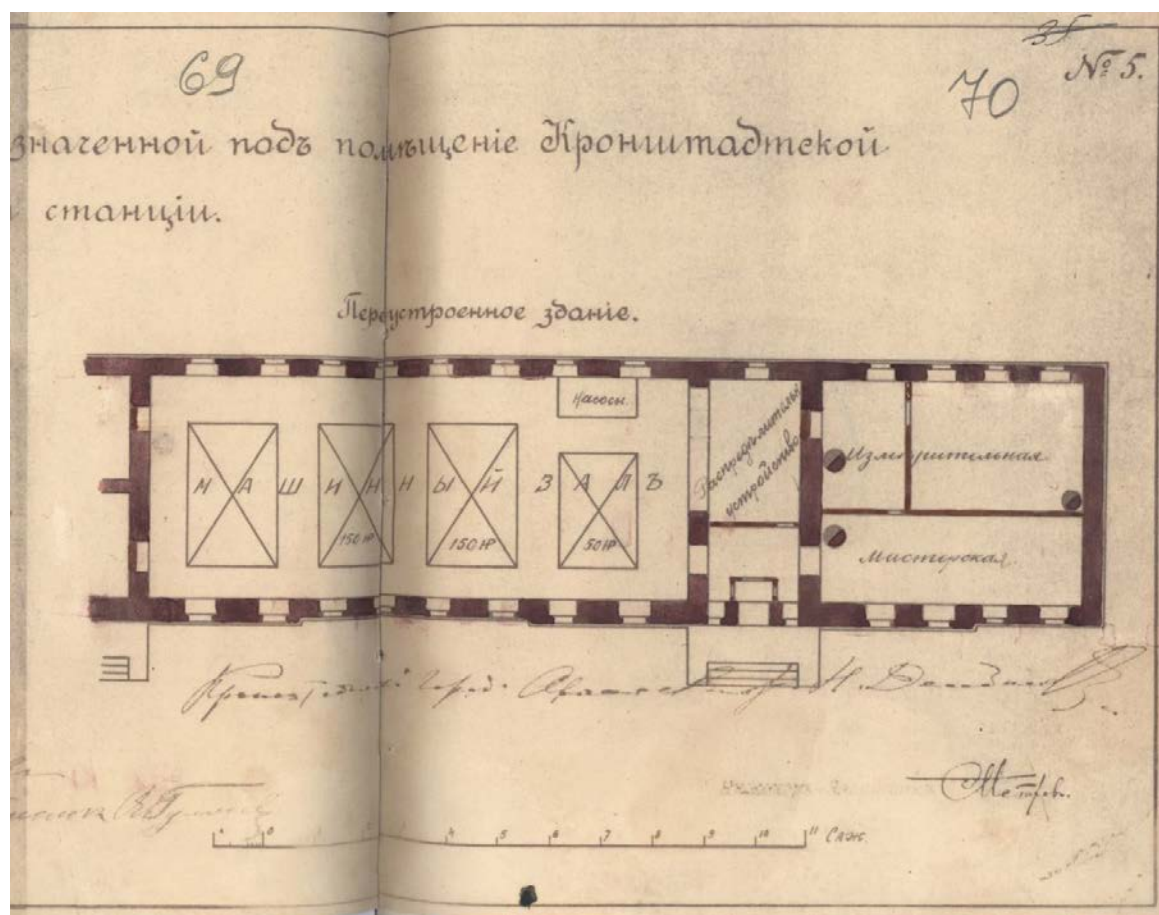 69
35
70
№ 5.
значенной подъ помѣщеніе Кронштадтской
станціи.
Переустроенное зданіе.
Насосн.
МАШИННЫЙ ЗАЛЪ
150 HP
150 HP
50 HP
Распредѣлительн.
устройство
Измѣрительная
Мастерская.
Кронштадтскій Город. Архитекторъ
1 0 1 2 4 5 6 7 8 9 10 11 Саж.